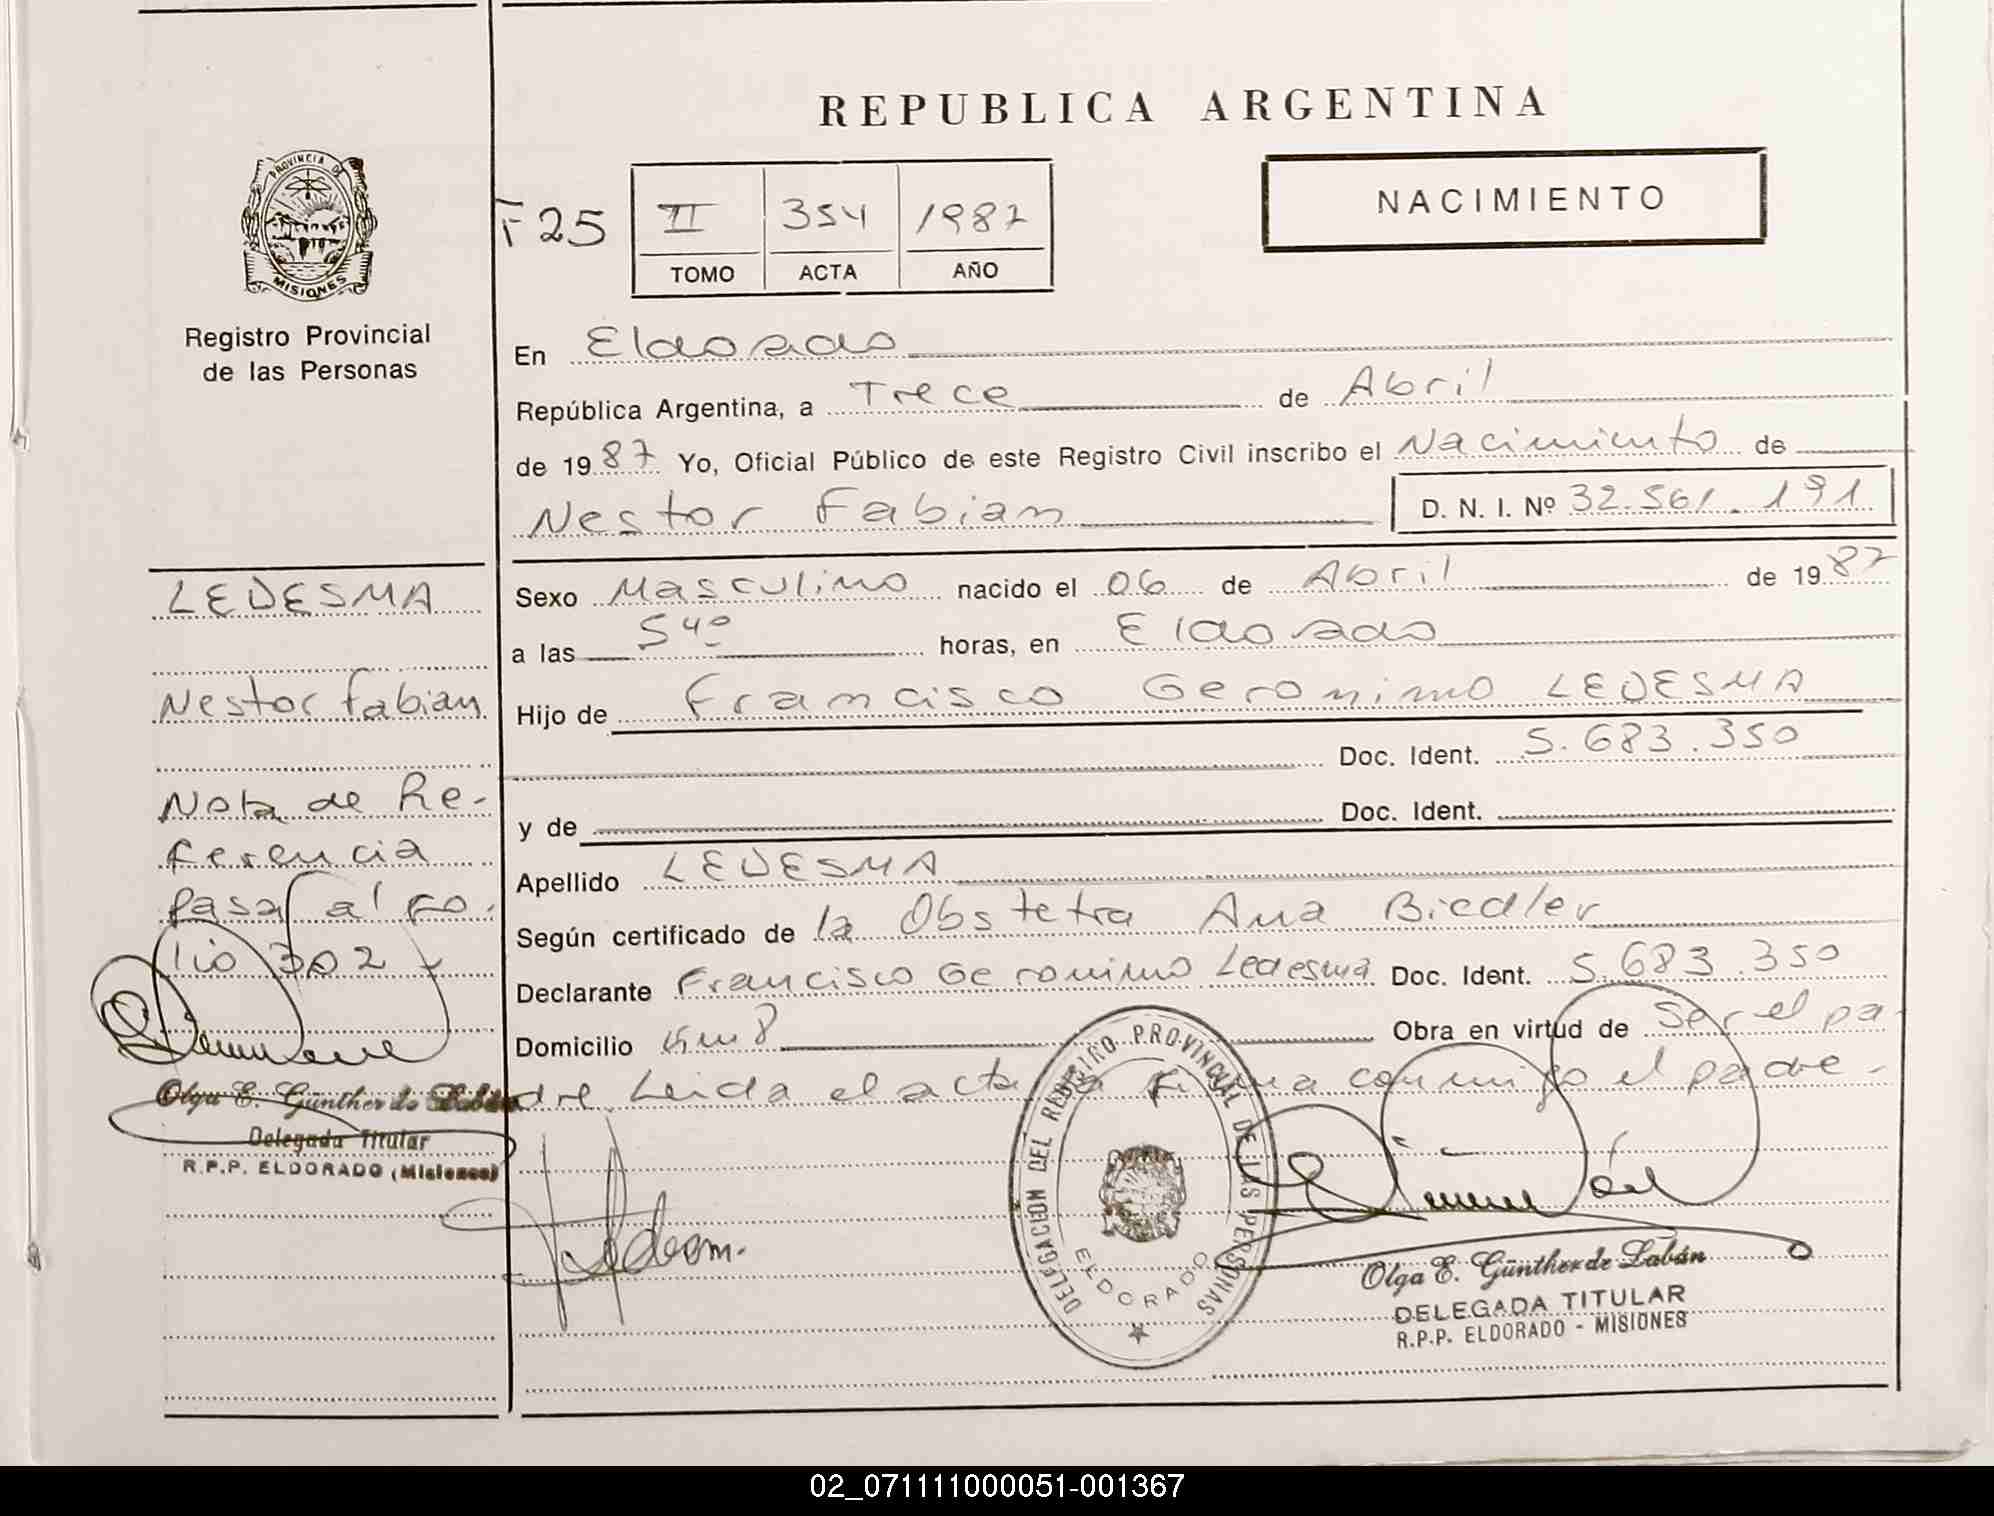 REPUBLICA ARGENTINA
PROVINCIA DE
MISIONES
Registro Provincial
de las Personas
F25
II 354 1987
TOMO ACTA AÑO
NACIMIENTO
En Eldorado
República Argentina, a Trece de Abril
de 1987 Yo, Oficial Público de este Registro Civil inscribo el Nacimiento de
Nestor Fabian D. N. I. Nº 32.561.191
Sexo Masculino nacido el 06 de Abril de 1987
a las 5 40 horas, en Eldorado
Hijo de Francisco Geronimo LEDESMA
Doc. Ident. 5.683.350
y de Doc. Ident.
Apellido LEDESMA
Según certificado de la Obstetra Ana Biedler
Declarante Francisco Geronimo Ledesma Doc. Ident. 5.683.350
Domicilio km 8 Obra en virtud de ser el pa-
dre. Leida el acta la firma conmigo el padre.
LEDESMA
Nestor Fabian
Nota de Re-
ferencia
pasa al fo-
lio 302
Olga E. Günther de Labán
Delegada Titular
R.P.P. ELDORADO (Misiones)
DELEGACION DEL REGISTRO PROVINCIAL DE LAS PERSONAS
ELDORADO
Olga E. Günther de Labán
DELEGADA TITULAR
R.P.P. ELDORADO - MISIONES
02_071111000051-001367